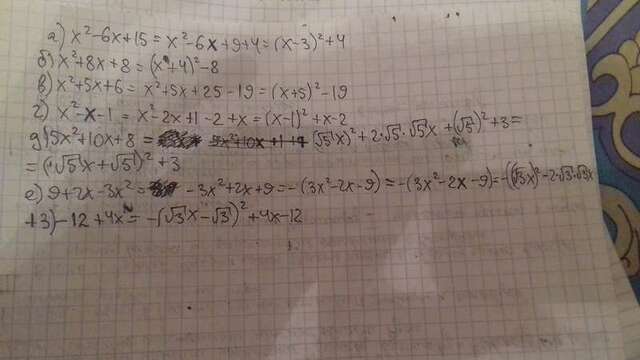 а) x²-6x+15 = x²-6x+9+4 = (x-3)²+4
б) x²+8x+8 = (x+4)²-8
в) x²+5x+6 = x²+5x+25-19 = (x+5)²-19
г) x²-x-1 = x²-2x+1-2+x = (x-1)²+x-2
д) 5x²+10x+8 = (√5x)²+2·√5·√5x+(√5)²+3=
= (√5x+√5)²+3
е) 9+2x-3x² = -3x²+2x+9 = -(3x²-2x-9) = -(3x²-2x-9) = -((√3x)²-2·√3·√3x
+3)-12+4x = -(√3x-√3)²+4x-12